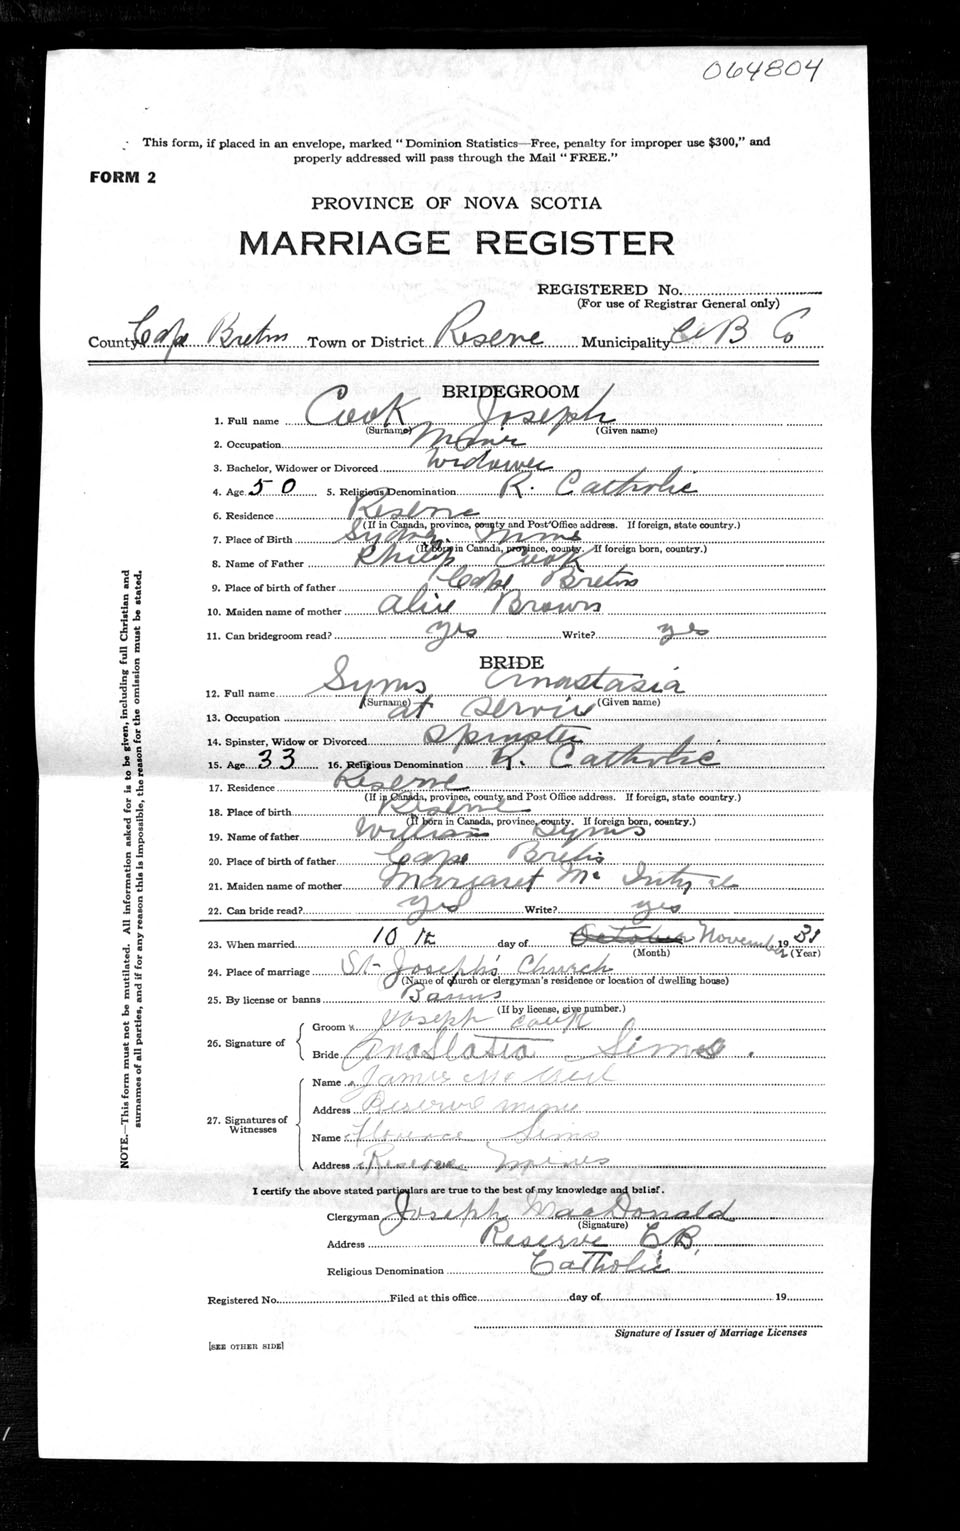 064804
This form, if placed in an envelope, marked "Dominion Statistics—Free, penalty for improper use $300," and
properly addressed will pass through the Mail "FREE."
FORM 2
PROVINCE OF NOVA SCOTIA
MARRIAGE REGISTER
REGISTERED No.
(For use of Registrar General only)
County Cape Breton Town or District Reserve Municipality C B Co
BRIDEGROOM
1. Full name Cook Joseph
(Surname) (Given name)
2. Occupation Miner
3. Bachelor, Widower or Divorced Widower
4. Age 50 5. Religious Denomination R. Catholic
6. Residence Reserve
(If in Canada, province, county and Post Office address. If foreign, state country.)
7. Place of Birth Sydney Mines
(If born in Canada, province, county. If foreign born, country.)
8. Name of Father Philip Cook
9. Place of birth of father Cape Breton
10. Maiden name of mother Alice Brown
11. Can bridegroom read? yes Write? yes
BRIDE
12. Full name Syms Anastasia
(Surname) (Given name)
13. Occupation at Servic
14. Spinster, Widow or Divorced Spinster
15. Age 33 16. Religious Denomination R. Catholic
17. Residence Reserve
(If in Canada, province, county and Post Office address. If foreign, state country.)
18. Place of birth Reserve
(If born in Canada, province, county. If foreign born, country.)
19. Name of father William Syms
20. Place of birth of father Cape Breton
21. Maiden name of mother Margaret Mc
22. Can bride read? yes Write? yes
23. When married 10 th day of October November 19 31
(Month) (Year)
24. Place of marriage St- Joseph's Church
(Name of church or clergyman's residence or location of dwelling house)
25. By license or banns Banns
(If by license, give number.)
26. Signature of
Groom x Joseph Cook
Bride Anastatia Sims
27. Signatures of Witnesses
Name James McNeil
Address Reserve mines
Name Florence Sims
Address Reserve Mines
I certify the above stated particulars are true to the best of my knowledge and belief.
Clergyman Joseph MacDonald
(Signature)
Address Reserve C.B.
Religious Denomination Catholic
Registered No. Filed at this office day of 19
Signature of Issuer of Marriage Licenses
[SEE OTHER SIDE]
NOTE.—This form must not be mutilated. All information asked for is to be given, including full Christian and
surnames of all parties, and if for any reason this is impossible, the reason for the omission must be stated.